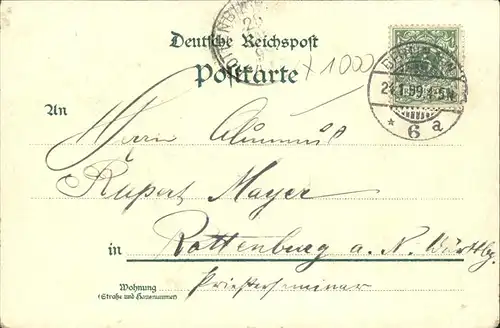 Deutsche Reichspost
Postkarte
x 1000
24.1.99.
* 6 a
An Herrn Alumnus
Rupert Mayer
in Rottenburg a. N. Württbg.
Wohnung
(Straße und Hausnummer)
Priesterseminar